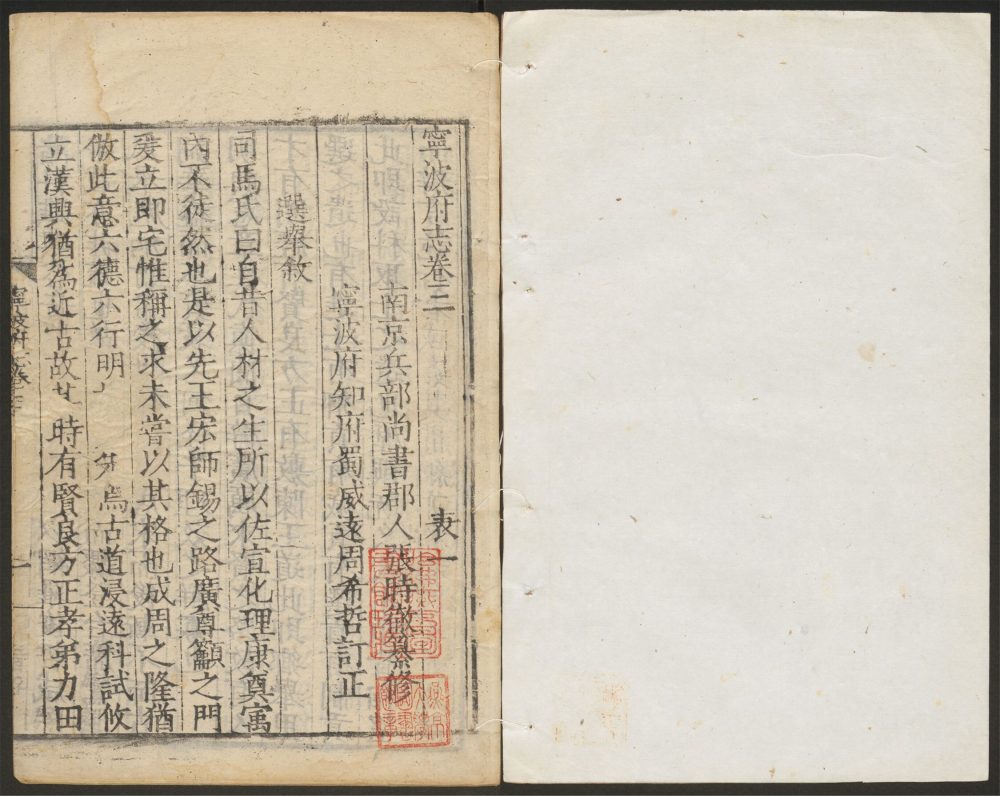 寧波府志卷三 表一
南京兵部尚書郡人張時徹纂修
寧波府知府蜀威遠周希哲訂正
選舉敘
司馬氏曰自昔人材之生所以佐宣化理康奠寓
內不徒然也是以先王宏師錫之路廣尊籲之門
爰立即宅惟稱之求未嘗以其格也成周之隆猶
倣此意六德六行明 爲古道浸遠科試攸
立漢興猶爲近古故 時有賢良方正孝弟力田
寧波府志卷三
一